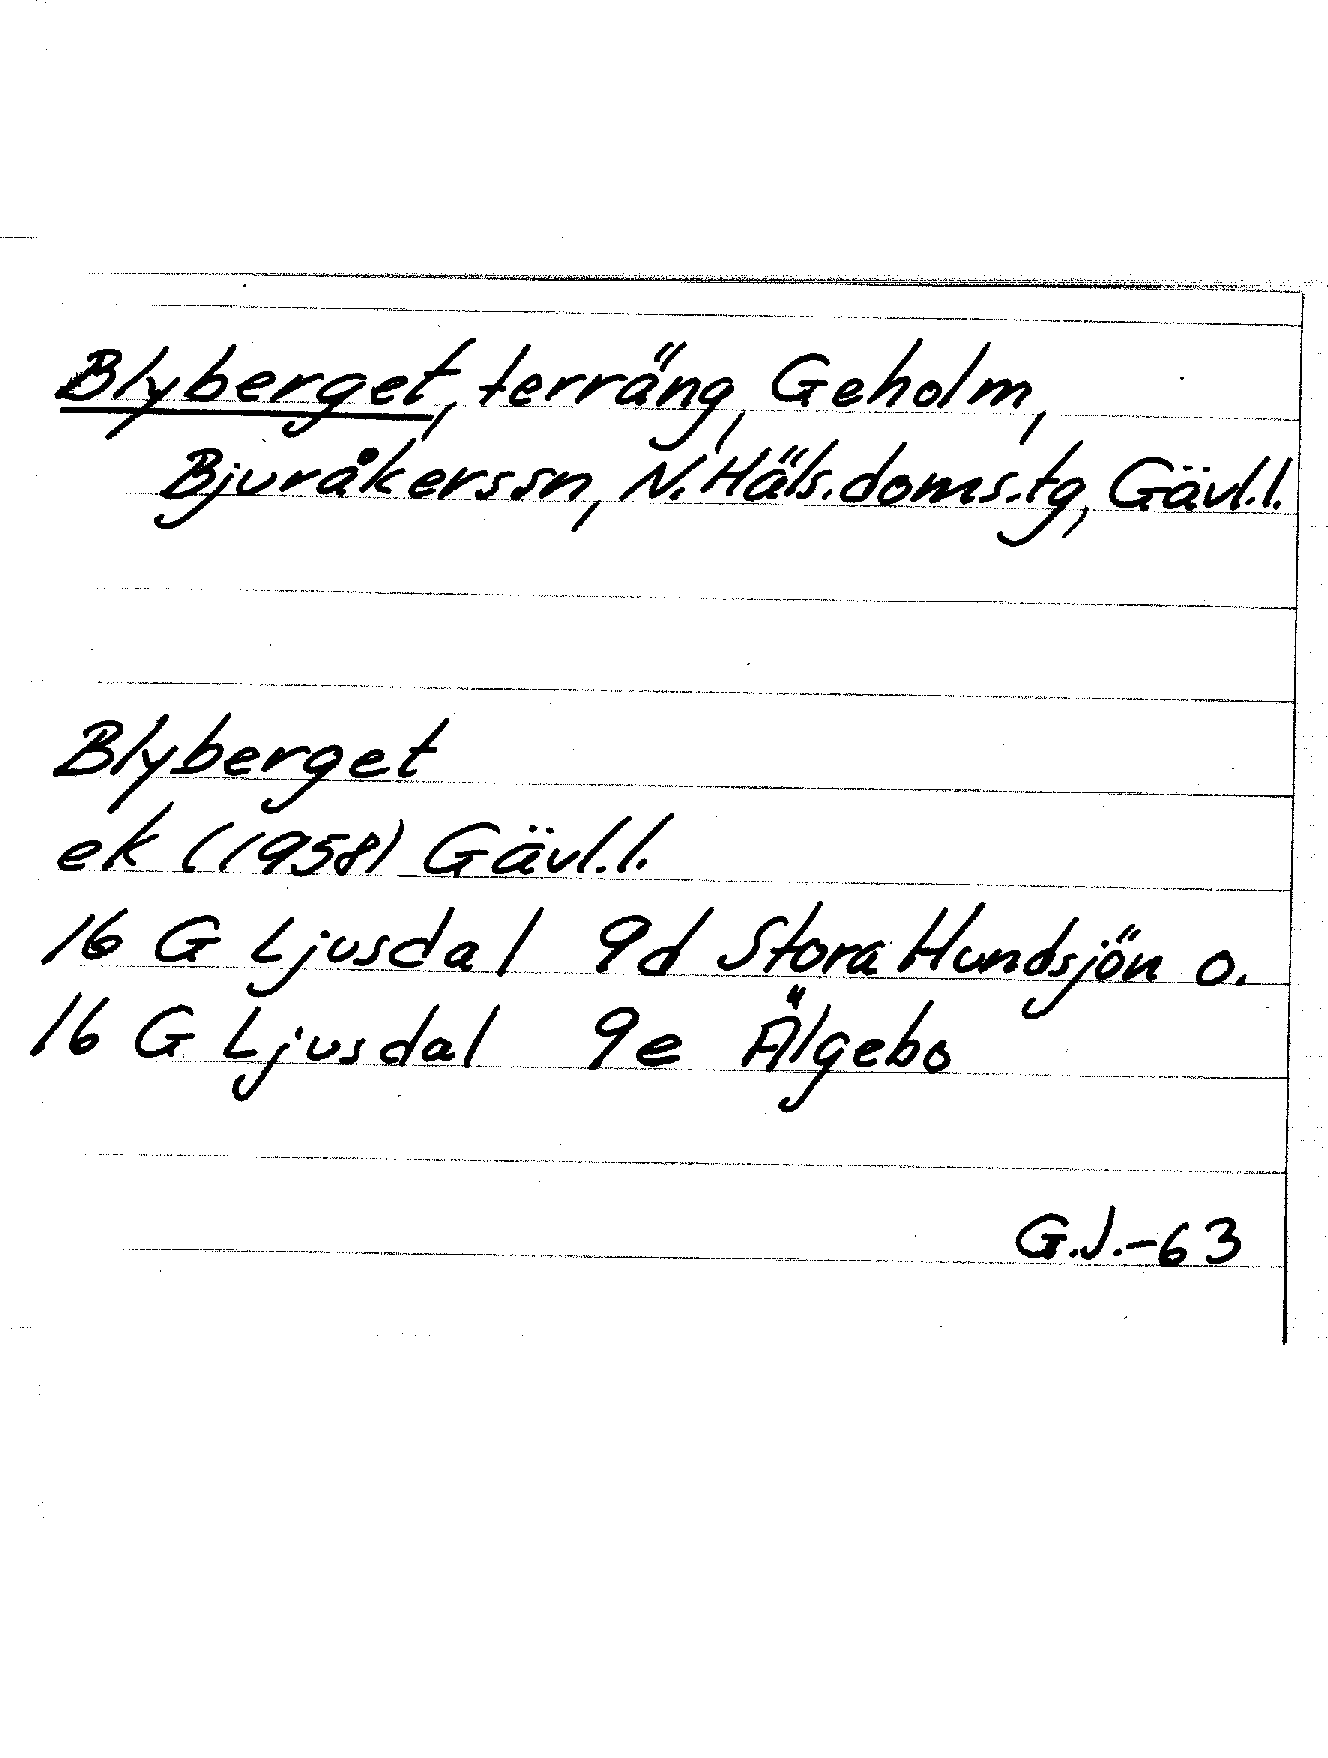 Blyberget, terräng, Geholm,
Bjuråkerssn, N. Häls. doms.tg, Gävl.l.
Blyberget
ek (1958) Gävl.l.
16 G Ljusdal 9d Stora Hundsjön o.
16 G Ljusdal 9e Älgebo
G.J.-63